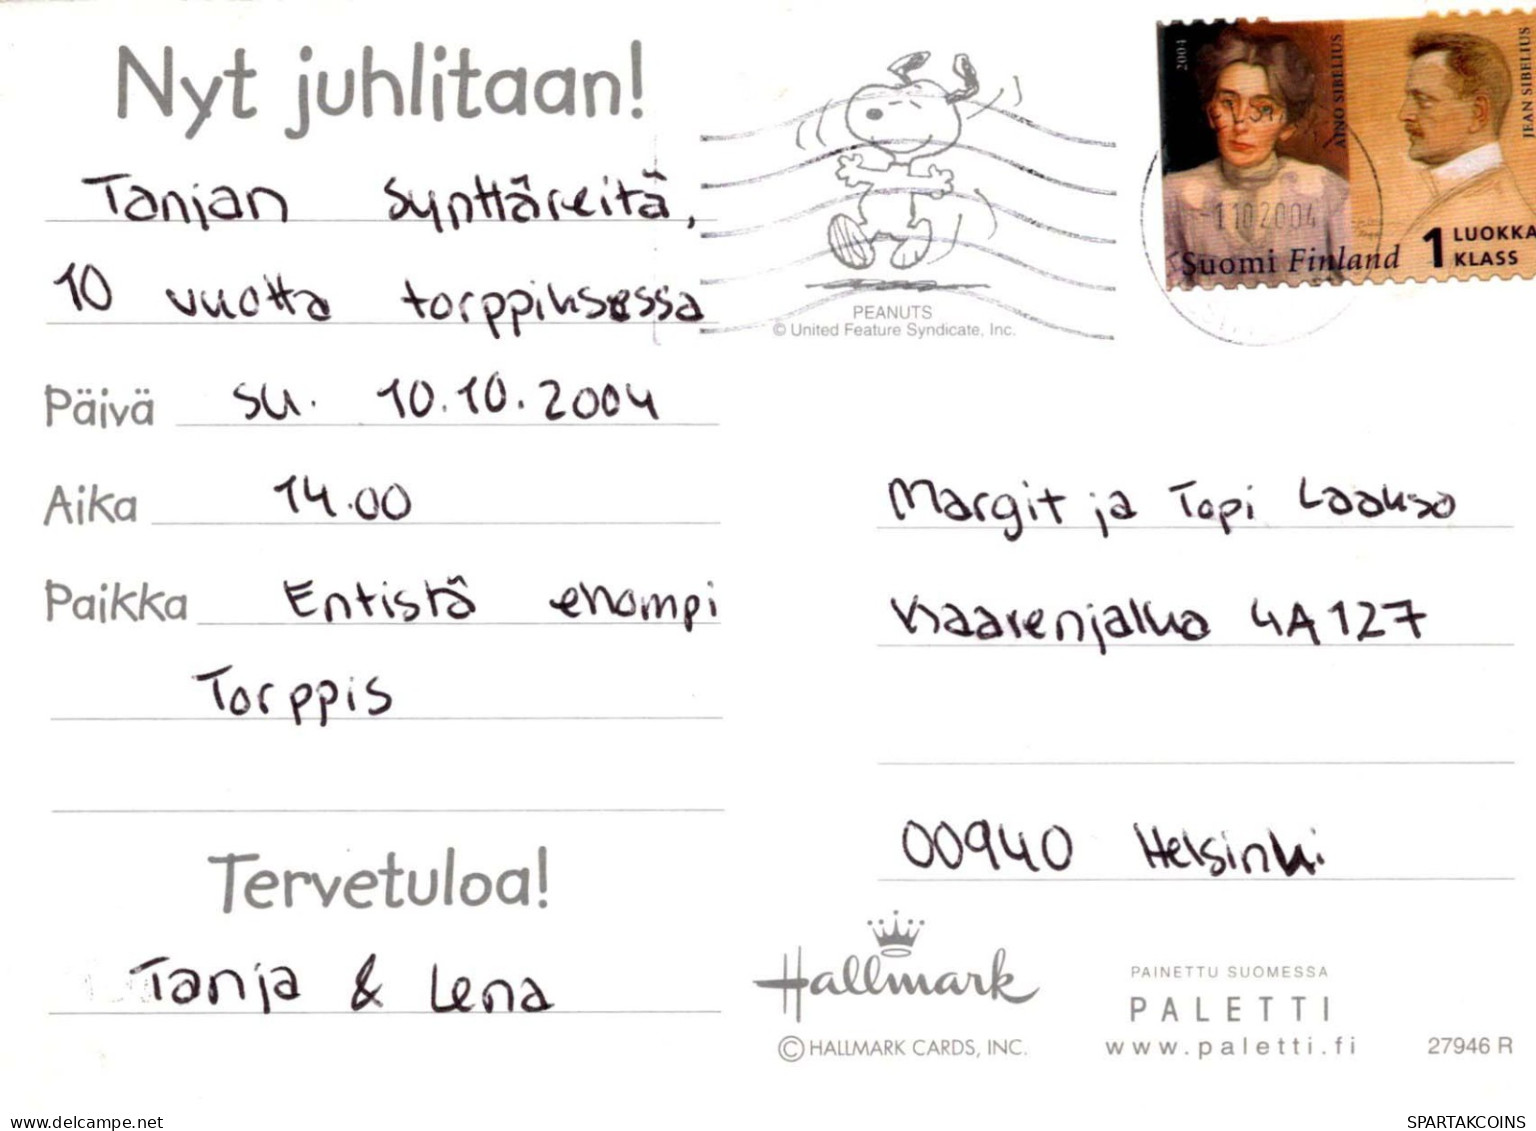 Nyt juhlitaan!
Tanjan synttäreitä,
10 vuotta torppiksessa
Päivä su. 10.10.2004
Aika 14.00
Paikka Entistä ehompi
Torppis
Tervetuloa!
Tanja & Lena
PEANUTS
© United Feature Syndicate, Inc.
2004
AINO SIBELIUS
JEAN SIBELIUS
-1.10.2004
Suomi Finland
1 LUOKKA
KLASS
Margit ja Topi Laakso
Kaarenjalka 4A127
00940 Helsinki
Hallmark
© HALLMARK CARDS, INC.
PAINETTU SUOMESSA
PALETTI
www.paletti.fi
27946 R
hippostcard.com
SPARTAKCOINS